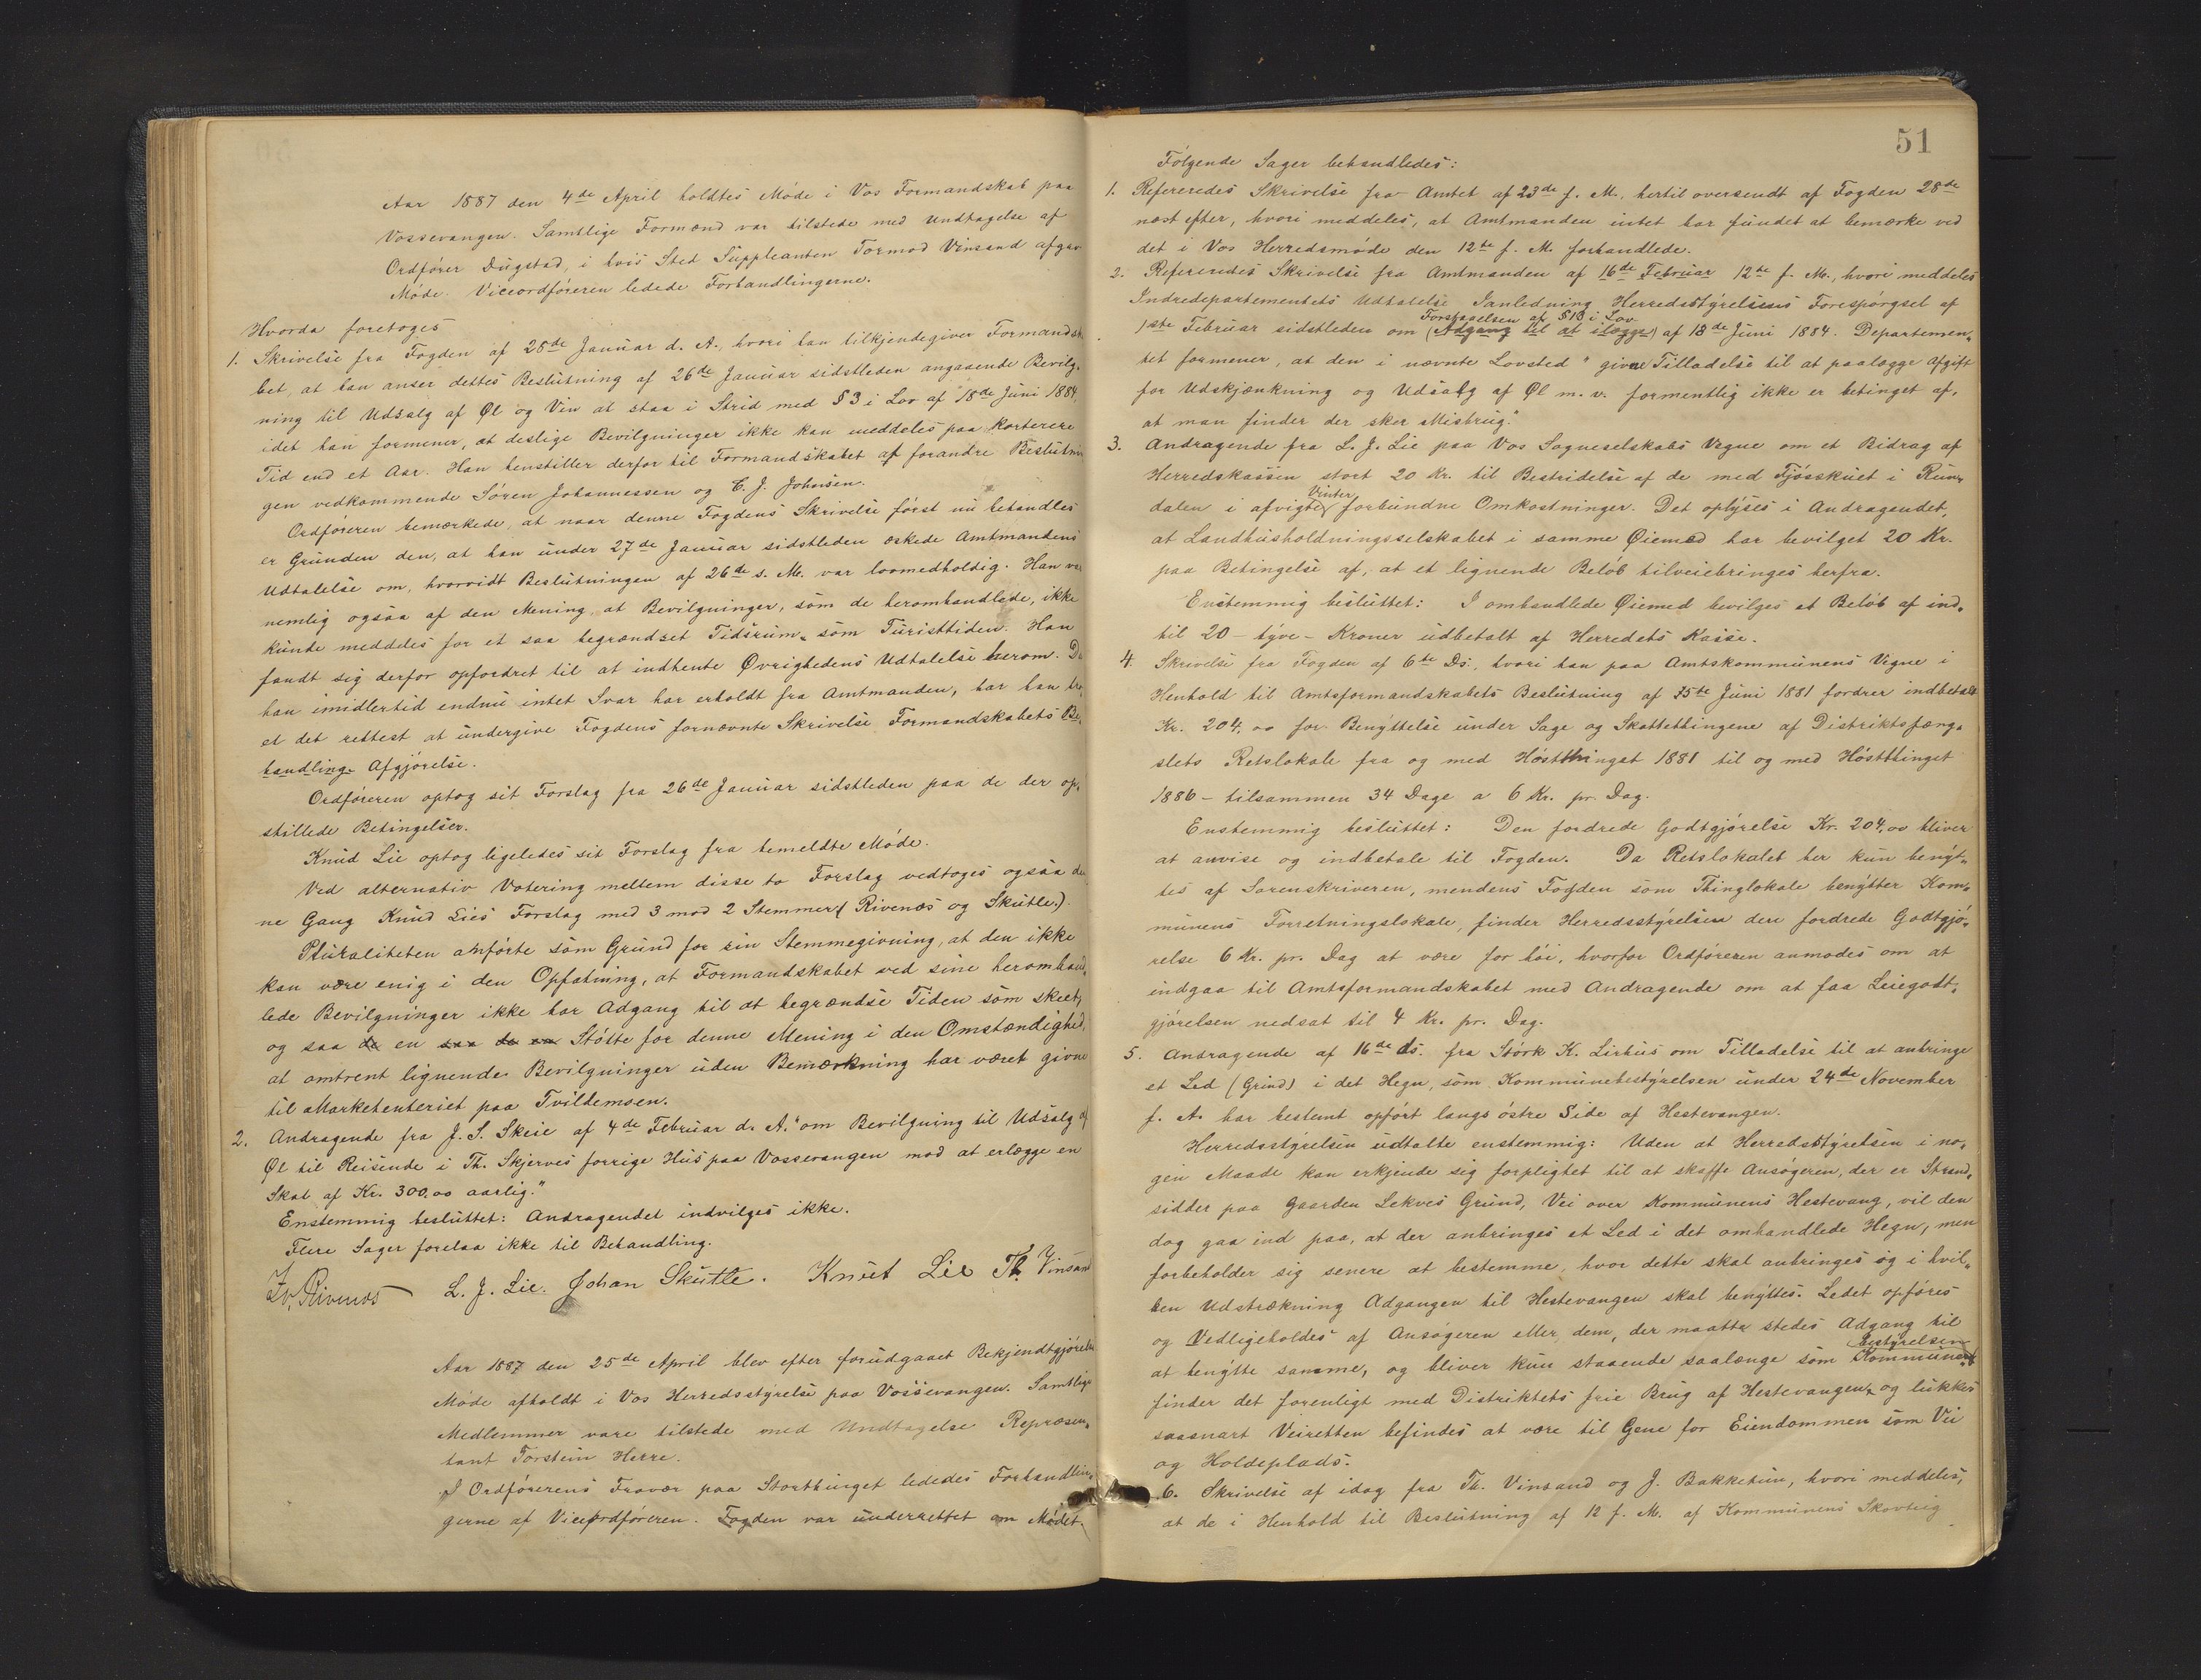 Aar 1887 den 4de April holdtes Møde i Vos Formandskab paa
Vossevangen. Samtlige Formænd var tilstede med Undtagelse af
Ordfører Dugstad, i hvis Sted Suppleanten Tormod Vinsand afgav
Møde. Viceordføreren ledede Forhandlingerne.
Hvorda foretoges
1. Skrivelse fra Fogden af 28de Januar d. A., hvori han tilkjendegiver Formandska
bet, at han anser dettes Beslutning af 26de Januar sidstleden angaaende Bevilg„
ning til Udsalg af Øl og Vin at staa i Strid med § 3 i Lov af 18de Juni 1884,
idet han formener, at deslige Bevilgninger ikke kan meddeles paa kortere
Tid end et Aar. Han henstiller derfor til Formandskabet at forandre Beslutnin
gen vedkommende Søren Johannessen og C. J. Johnsen.
Ordføreren bemærkede, at naar denne Fogdens Skrivelse først nu behandles
er Grunden den, at han under 27de Januar sidstleden æskede Amtmandens
Udtalelse om, hvorvidt Beslutningen af 26de s. M. var lovmedholdig. Han var
nemlig ogsaa af den Mening, at Bevilgninger, som de heromhandlede, ikke
kunde meddeles for et saa begrændset Tidsrum, som Turisttiden. Han
fandt sig derfor opfordret til at indhente Øvrighedens Udtalelse herom. Da
han imidlertid endnu intet Svar har erholdt fra Amtmanden, har han tro
et det rettest at undergive Fogdens fornævnte Skrivelse Formandskabets Be„
handling. Afgjørelse.
Ordføreren optog sit Forslag fra 26de Januar sidstleden paa de der op„
stillede Betingelser.
Knud Lie optog ligeledes sit Forslag fra bemeldte Møde.
Ved alternativ Votering mellem disse to Forslag vedtoges ogsaa den
ne Gang Knud Lies Forslag med 3 mod 2 Stemmer (Rivenæs og Skutle.)
Pluraliteten anførte som Grund for sin Stemmegivning, at den ikke
kan være enig i den Opfatning, at Formandskabet ved sine heromhand„
lede Bevilgninger ikke har Adgang til at begrændse Tiden som skeet,
og saa de en saa de en Støtte for denne Mening i den Omstændighed,
at omtrent lignende Bevilgninger uden Bemærkning har været givne
til Marketenteriet paa Tvildemoen.
2. Andragende fra J. S. Skeie af 4de Februar d. A. "om Bevilgning til Udsalg af
Øl til Reisende i Th. Skjerves forrige Hus paa Vossevangen mod at erlægge en
Skat af Kr. 300,00 aarlig."
Enstemmig besluttet: Andragendet indvilges ikke.
Flere Sager forelaa ikke til Behandling.
Rivenæs L. J. Lie. Johan Skutle. Knut Lie Th. Vinsand
Aar 1887 den 25de April blev efter forudgaaet Bekjendtgjørelse
Møde afholdt i Vos Herredsstyrelse paa Vossevangen. Samtlige
Medlemmer vare tilstede med Undtagelse Repræsen„
tant Torstein Herre.
I Ordførerens Fravær paa Storthinget lededes Forhandlin„
gerne af Viceordføreren. Fogden var underrettet om Mødet.
51
Følgende Sager behandledes:
1. Refereredes Skrivelse fra Amtet af 23de f. M., hertil oversendt af Fogden 28de
næst efter, hvori meddeles, at Amtmanden intet har fundet at bemærke ved
det i Vos Herredsmøde den 12te f. M. forhandlede.
2. Refereredes Skrivelse fra Amtmanden af 16de Februar 12te f. M., hvori meddeles
Indredepartementets Udtalelse Ianledning Herredsstyrelsens Forespørgsel af
Forstaaelsen af § 13 i Lov
1ste Februar sidstleden om (Adgang til at ilægge) af 18de Juni 1884. Departemen„
tet formener, at den i nævnte Lovsted "givne Tilladelse til at paalægge Afgift
for Udskjænkning og Udsalg af Øl m. v. formentlig ikke er betinget af,
at man finder der sker Misbrug."
3. Andragende fra L. J. Lie paa Vos Sogneselskabs Vegne om et Bidrag af
Herredskassen stort 20 Kr. til Bestridelse af de med Fjøsskuet i Run„
Vinter
dalen i afvigte forbundne Omkostninger. Det oplyses i Andragendet,
at Landhusholdningsselskabet i samme Øiemed har bevilget 20 Kr.
paa Betingelse af, at et lignende Beløb tilveiebringes herfra.
Enstemmig besluttet: I omhandlede Øiemed bevilges et Beløb af ind„
til 20 – tyve – Kroner udbetalt af Herredets Kasse.
4. Skrivelse fra Fogden af 6te Ds., hvori han paa Amtskommunens Vegne i
Henhold til Amtsformandskabets Beslutning af 15de Juni 1881 fordrer indbetalt
Kr. 204,00 for Benyttelse under Sage og Skattethingene af Distriktsfæng„
slets Retslokale fra og med Høstthinget 1881 til og med Høstthinget
1886 – tilsammen 34 Dage a 6 Kr. pr. Dag.
Enstemmig besluttet: Den fordrede Godtgjørelse Kr. 204,00 bliver
at anvise og indbetale til Fogden. Da Retslokalet her kun benyt„
tes af Sorenskriveren, mendens Fogden som Thinglokale benytter Kom„
munens Forretningslokale, finder Herredsstyrelsen den fordrede Godtgjø„
relse 6 Kr. pr. Dag at være for høi, hvorfor Ordføreren anmodes om at
indgaa til Amtsformandskabet med Andragende om at faa Leiegodt„
gjørelsen nedsat til 4 Kr. pr. Dag.
5. Andragende af 16de ds. fra Størk K. Lirhus om Tilladelse til at anbringe
et Led (Grind) i det Hegn, som Kommunebestyrelsen under 24de November
f. A. har bestemt opført langs østre Side af Hestevangen.
Herredsstyrelsen udtalte enstemmig: Uden at Herredsstyrelsen i no„
gen Maade kan erkjende sig forpligtet til at skaffe Ansøgeren, der er Strand„
sidder paa Gaarden Lekves Grund, Vei over Kommunens Hestevang, vil den
dog gaa ind paa, at der anbringes et Led i det omhandlede Hegn, men
forbeholder sig senere at bestemme, hvor dette skal anbringes og i hvil„
ken Udstrækning Adgangen til Hestevangen skal benyttes. Ledet opføres
og Vedligeholdes af Ansøgeren eller dem, der maatte stedes Adgang til
bestyrelsen
at benytte samme, og bliver kun staaende saalænge som Kommunen
finder det forenligt med Distriktets frie Brug af Hestevangen, og lukkes
saasnart Veiretten befindes at være til Gene for Eiendommen som Vei
og Holdeplads.
6. Skrivelse af idag fra Th. Vinsand og J. Bakketun, hvori meddeles,
at de i Henhold til Beslutning af 12 f. M. af Kommunens Skovteig